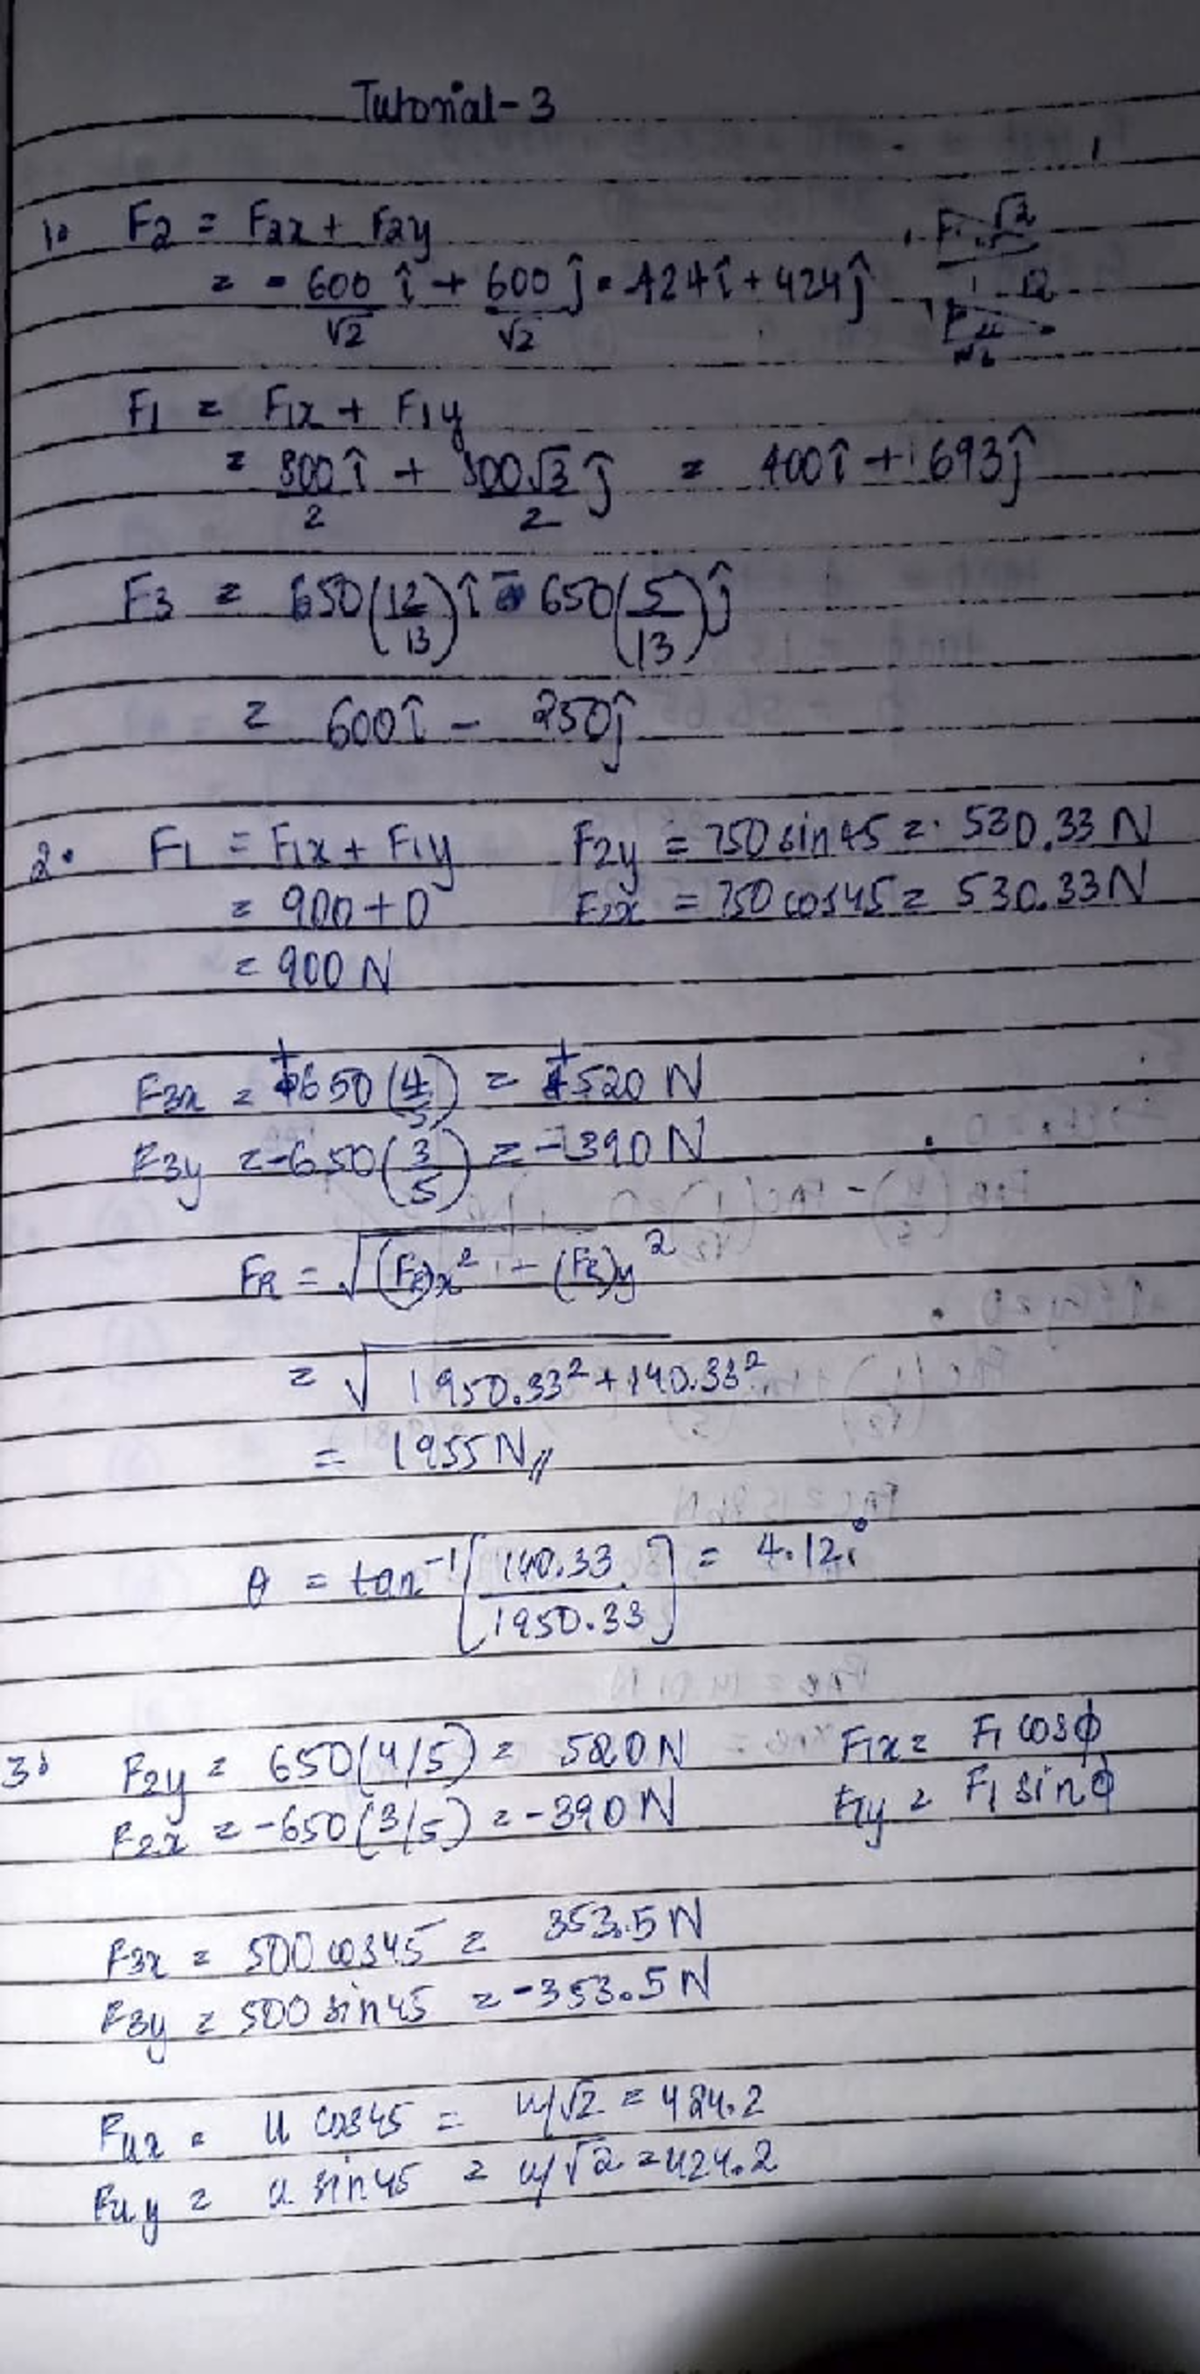 Tutorial-3
1. F2 = F2x + F2y
= -600/√2 î + 600/√2 ĵ = -424î + 424ĵ
F1 = F1x + F1y
= 800/2 î + 800√3/2 ĵ = 400î + 693ĵ
F3 = 650(12/13)î - 650(5/13)ĵ
= 600î - 250ĵ
2. F1 = F1x + F1y F2y = 750 sin45 = 530.33 N
= 900 + 0 F2x = 750 cos45 = 530.33 N
= 900 N
F3x = +650(4/5) = +520 N
F3y = -650(3/5) = -390 N
FR = √(FR)x² + (FR)y²
= √1950.33² + 140.33²
= 1955 N //
θ = tan⁻¹[140.33/1950.33] = 4.12°
3. F2y = 650(4/5) = 520 N F1x = F1 cosϕ
F2x = -650(3/5) = -390 N F1y = F1 sinϕ
F3x = 500 cos45 = 353.5 N
F3y = 500 sin45 = -353.5 N
F4x = 4 cos45 = 4/√2 = 424.2
F4y = 4 sin45 = 4/√2 = 424.2